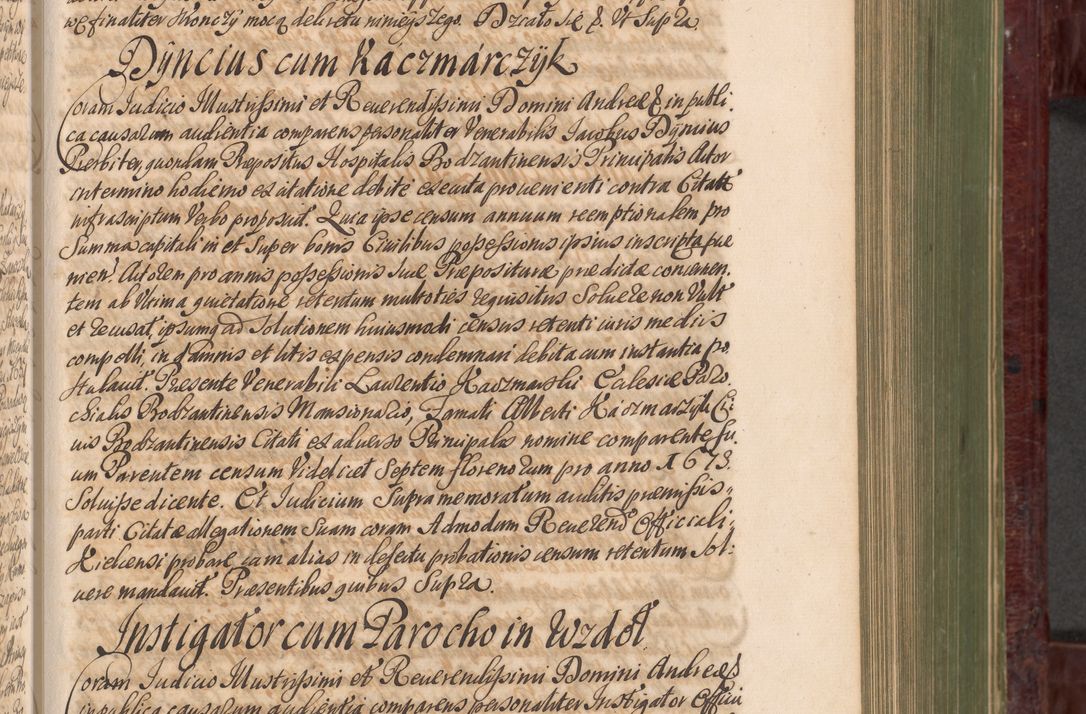 we finaliter skonczy mocą dekretu ninieyszego. Działo się &. Ut Supra.
Dÿncius cum Kaczmárczÿk
Coram Iudicio Illustrissimi et Reuerendissimi Domini Andreæ & in publi-
ca causarum audientia comparens personaliter Venerabilis Iacobus Dÿncius
Præsbiter, quondam Præpositus Hospitalis Bodzantinensis Principalis Actor
in termino hodierno ex citatione debite executa prouenienti contra Citatũ
infrascriptum Verbo proposuit. Quia ipse censum annuum reemptionalem pro
Summa capitali in et super bonis Ciuilibus possessionis ipsius inscripta pue
nien: Actorem pro annis possessionis suæ Præposituræ prædictæ concernen-
tem ab Ultima quietatione retentum multoties requisitus Soluere non Vult
et recusat, ipsumq ad Solutionem huiusmodi census retenti iuris medijs
compelli, in damnis et litis expensis condemnari debita cum instantia po-
stulauit. Præsente Venerabili Laurentio Kaczmarski Ecclesiæ Paro-
chialis Bodzantinensis Mansionario, Famati Alberti Kaczmarzyk Ci-
uis Bodzantinensis Citati ex aduerso Principalis nomine comparente su-
um Parentem censum Videlicet Septem florenorum pro anno 1673.
Soluisse dicente. Et Iudicium Supra memoratum auditis præmissis
parti Citatæ allegationem suam coram Admodum Reuerendo Officiali
Kielcensi probare, eam alias in defectu probationis censum retentum Sol-
uere mandauit. Præsentibus quibus Supra.
Instigator cum Parocho in Wzdoł.
Coram Iudicio Illustrissimi et Reuerendissimi Domini Andreæ &
in publica causarum audientia comparens personaliter Instigator Officii